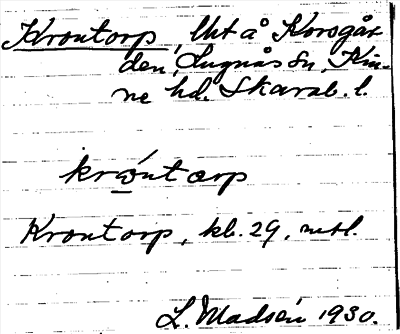 Krontorp, lht å Korsgår
den, Lugnås sn, Kin-
ne hd. Skarab. l.
krωntωrp
Krontorp, kb. 29, mtl.
L. Madsén 1930.